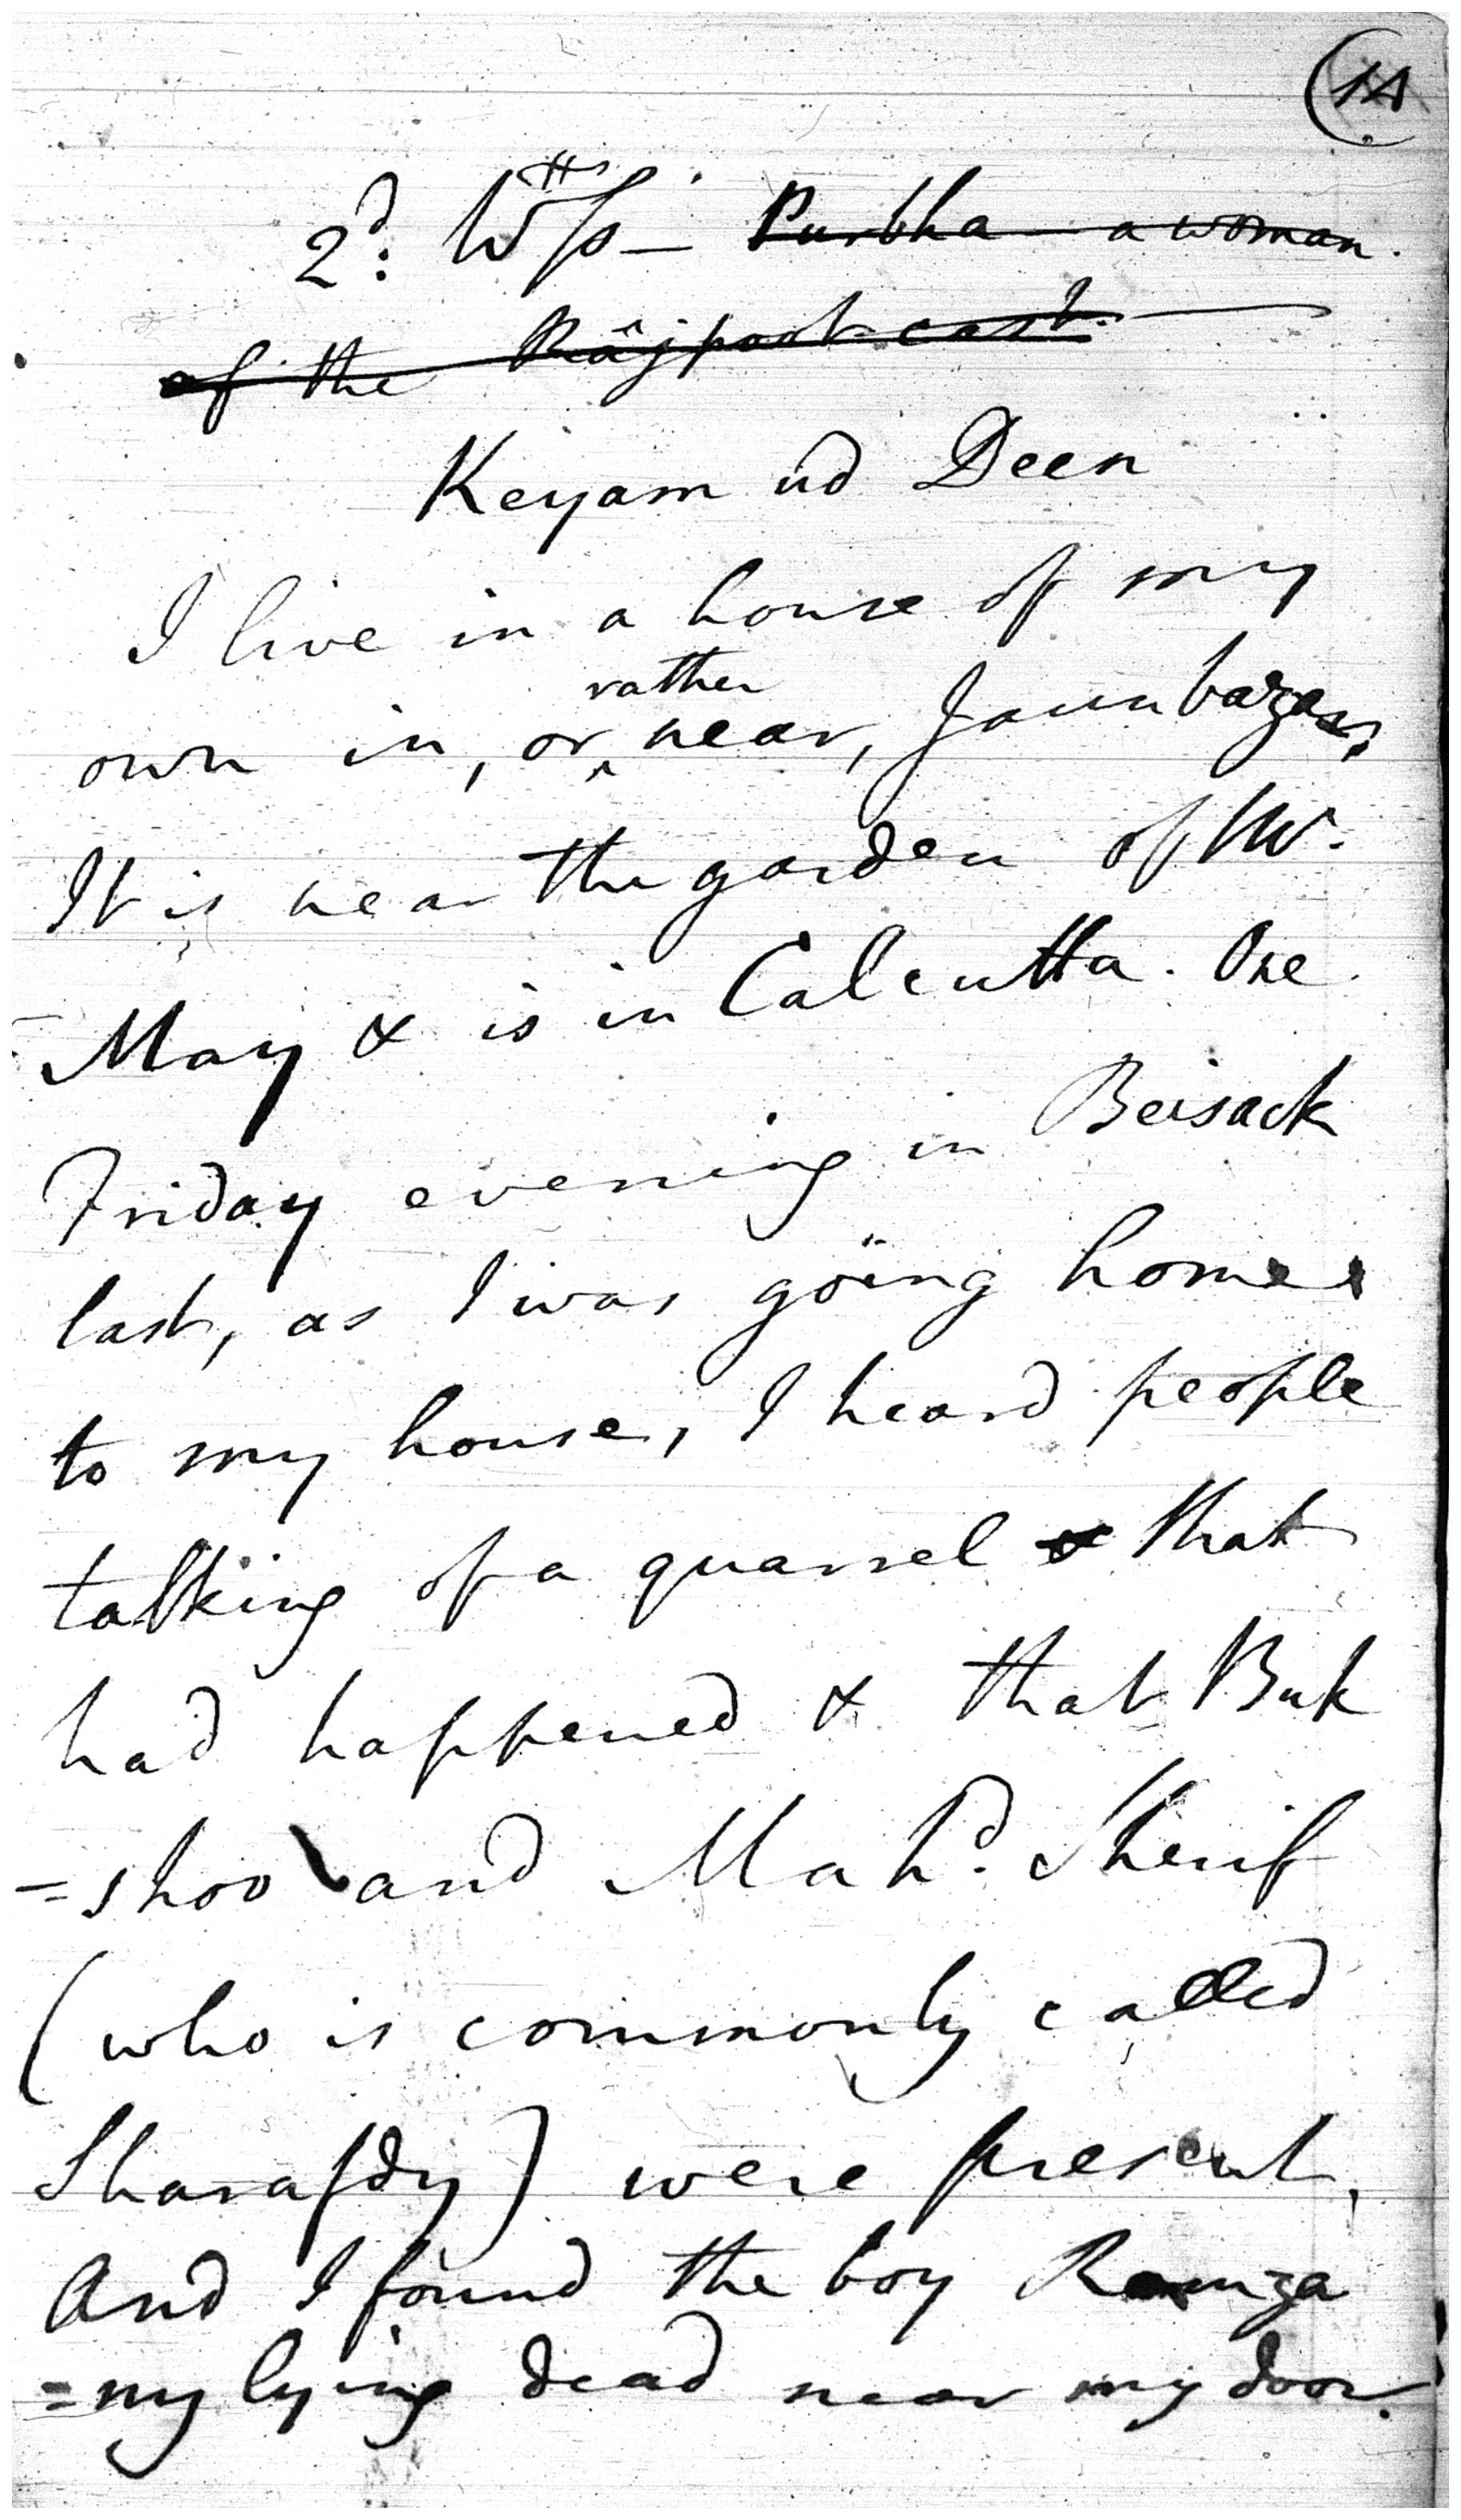 (14
2d: Wtss — Purbha a woman.
of the Râjpoot cast.
Keyam ud Deen
I live in a house of my
own in, or rather near, Jaun bazar.
It is near the garden of Mr.
May & is in Calcutta. One
Friday evening in Beisack
last, as I was göing home
to my house, I heard people
talking of a quarrel that
had happened & that Buk
=shoo and Mahd. Sherif
(who is commonly called
Sharafdy) were present,
And I found the boy Ramza
=ny lying dead near my door.